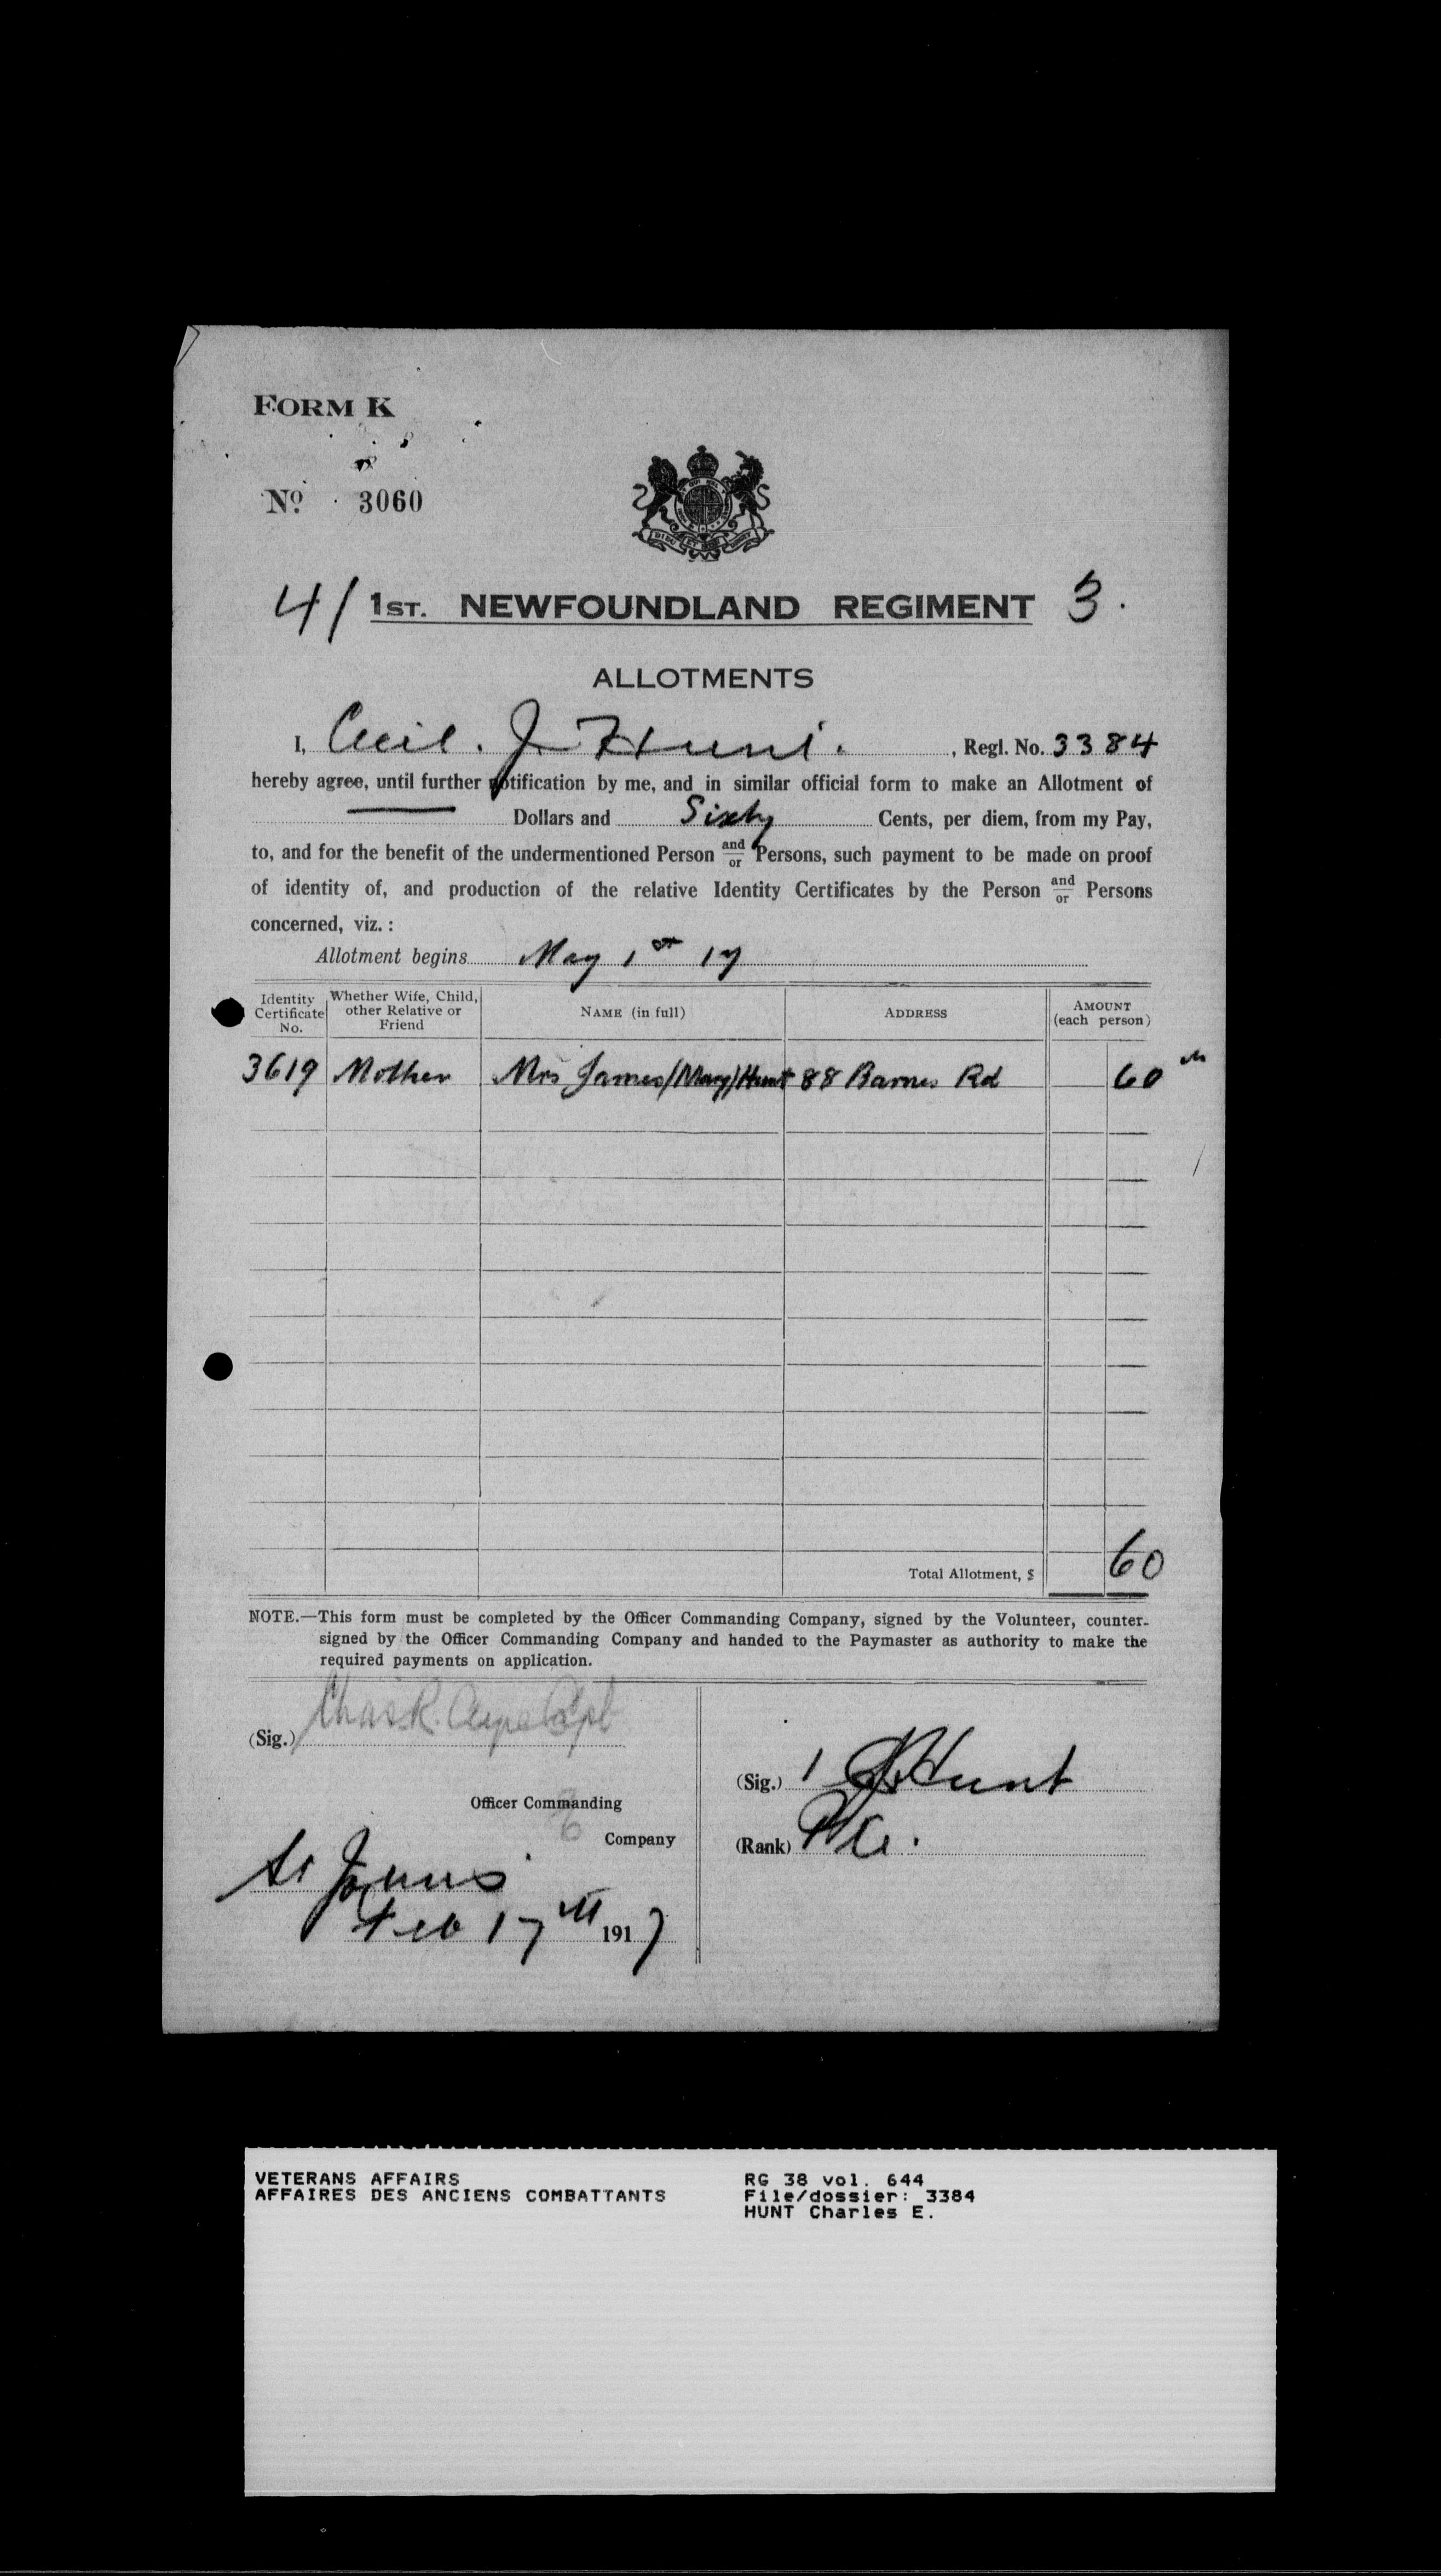 FORM K
No. 3060
4/ 1ST. NEWFOUNDLAND REGIMENT 3.
ALLOTMENTS
I, Cecil. J Hunt. , Regl. No. 3384
hereby agree, until further notification by me, and in similar official form to make an Allotment of
Dollars and Sixty Cents, per diem, from my Pay,
to, and for the benefit of the undermentioned Person and/or Persons, such payment to be made on proof
of identity of, and production of the relative Identity Certificates by the Person and/or Persons
concerned, viz. :
Allotment begins May 1st 17
Identity Certificate No. Whether Wife, Child, other Relative or Friend NAME (in full) ADDRESS AMOUNT (each person)
3619 Mother Mrs James/Mary/Hunt 88 Barnes Rd 60
Total Allotment, $ 60
NOTE.—This form must be completed by the Officer Commanding Company, signed by the Volunteer, counter-
signed by the Officer Commanding Company and handed to the Paymaster as authority to make the
required payments on application.
(Sig.) Chas R. Capt
(Sig.) J Hunt
Officer Commanding
Company
(Rank) Pte.
St Johns
Feb 17th 1917
VETERANS AFFAIRS RG 38 vol. 644
AFFAIRES DES ANCIENS COMBATTANTS File/dossier: 3384
HUNT Charles E.